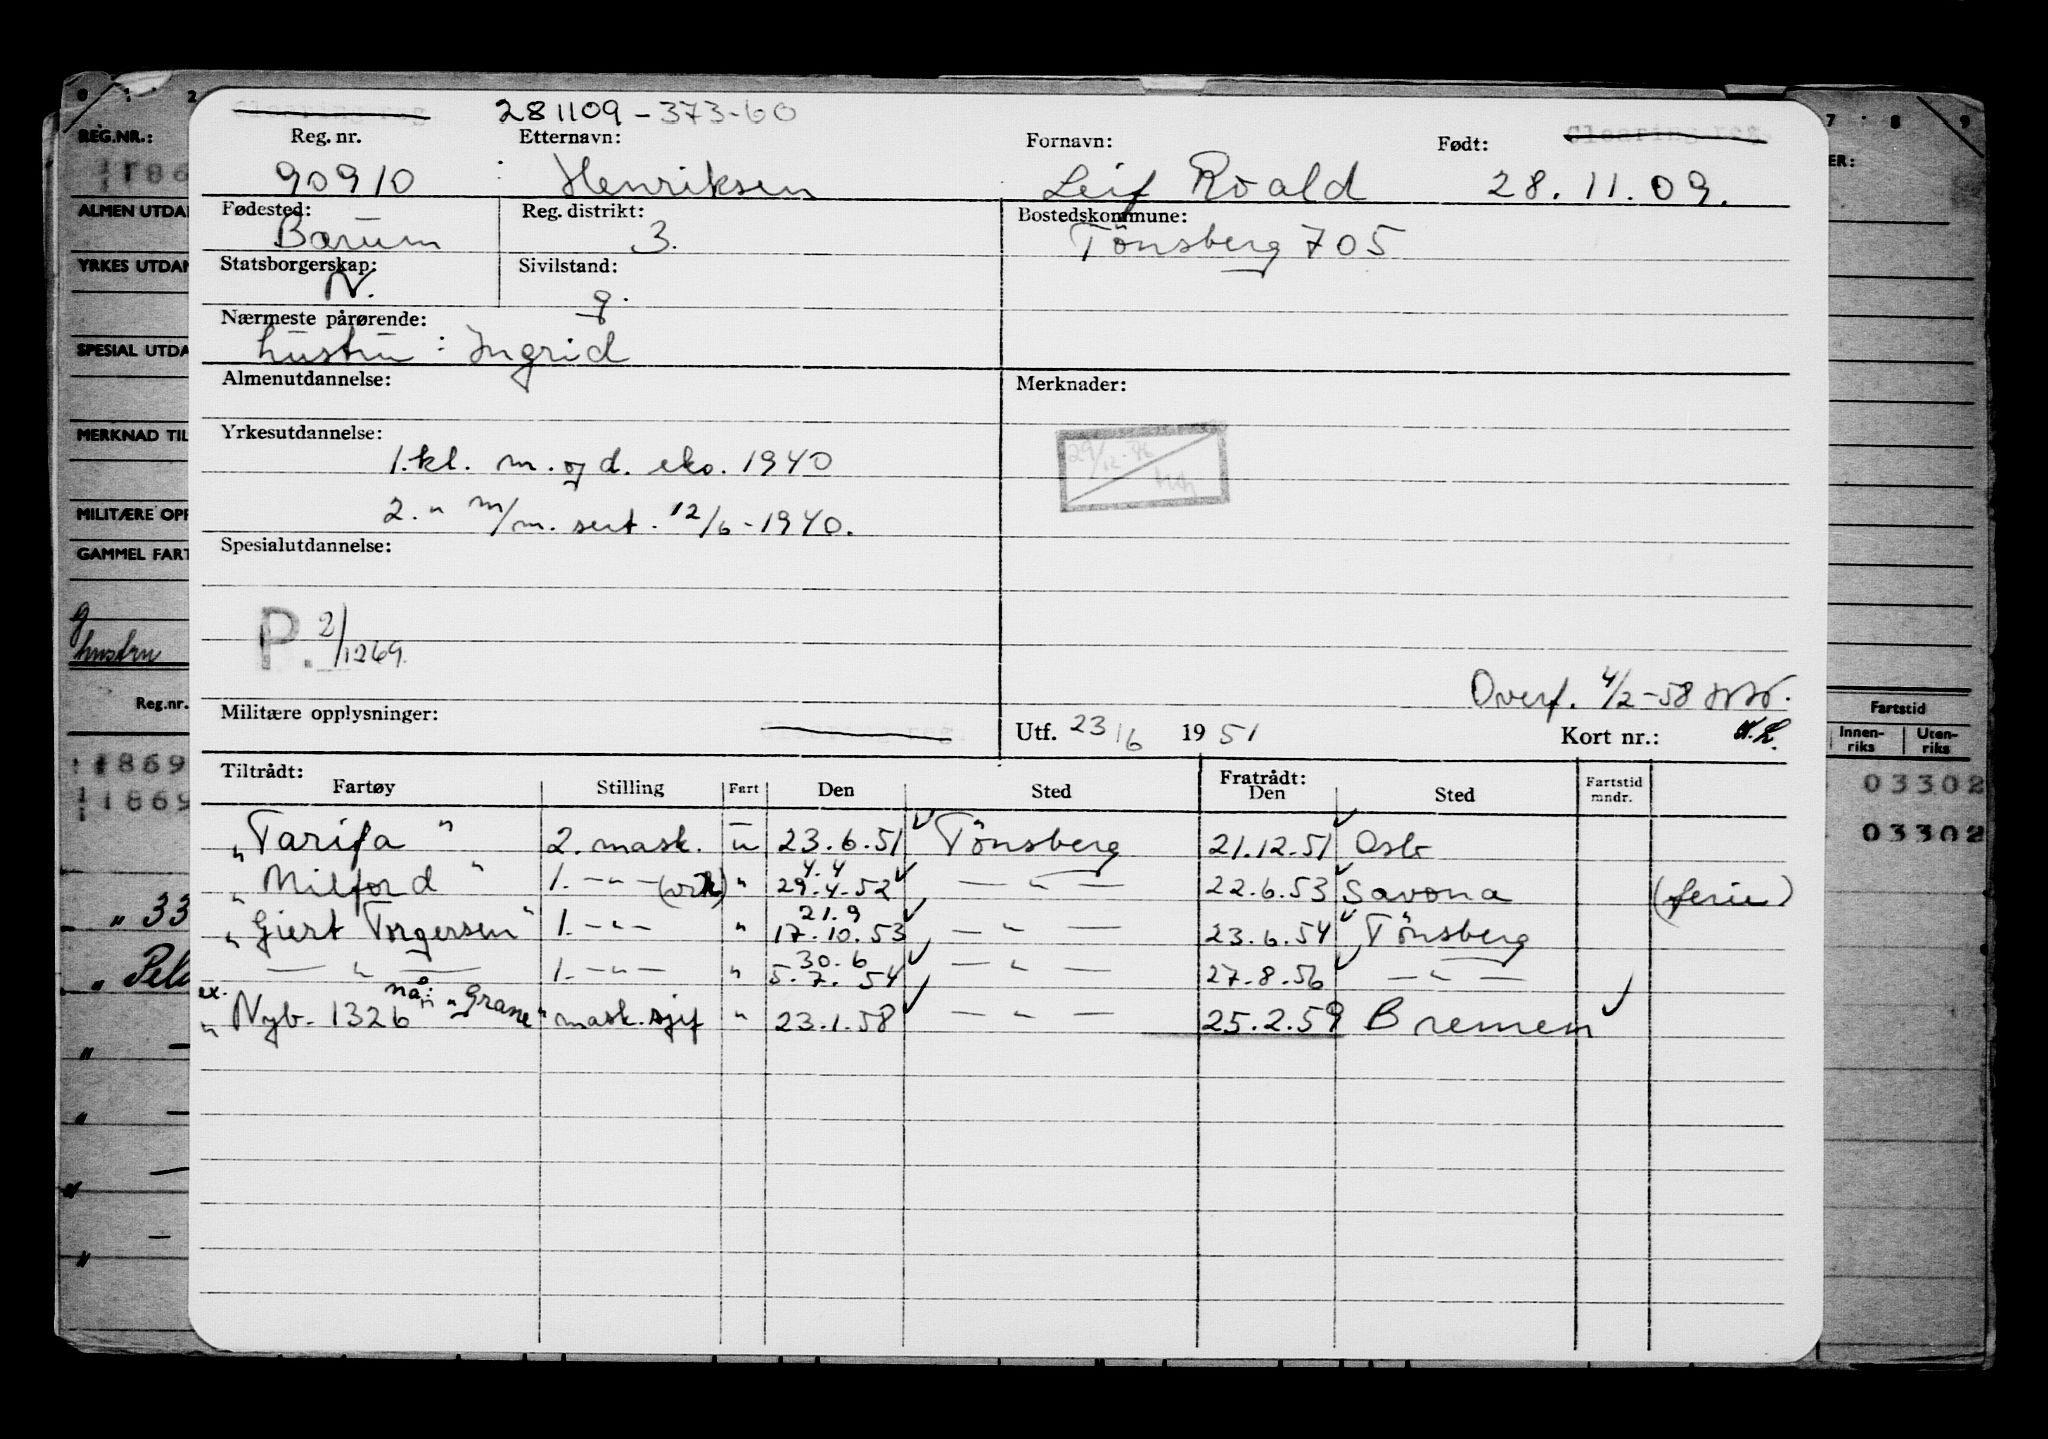 281109-373-60
Reg. nr. Etternavn: Fornavn: Født:
90910 Henriksen Leif Roald 28.11.09.
Fødested: Reg. distrikt: Bostedskommune:
Bærum 3. Tönsberg 705
Statsborgerskap: Sivilstand:
N. g.
Nærmeste pårørende:
hustru: Ingrid
Almenutdannelse: Merknader:
Yrkesutdannelse:
1.kl. m. og d. eks. 1940
29/12-76
2. " m/m. sert. 12/6-1940.
Spesialutdannelse:
P. 2/1269.
Overf. 4/2-58
Militære opplysninger: Utf. 23/6 1951 Kort nr.:
Tiltrådt: Fratrådt:
Fartøy Stilling Fart Den Sted Den Sted Fartstid mndr.
"Tarifa" 2. mask. u 23.6.51 Tönsberg 21.12.51 Oslo
4.4
"Milford" 1. -"- (vik) " 29.4.52 — " — 22.6.53 Savona (ferie)
21.9
"Giert Torgersen" 1. -"- " 17.10.53 — " — 23.6.54 Tönsberg
30.6
— " — 1. -"- " 5.7.54 — " — 27.8.56 — " —
ex. nå: "Grane"
"Nyb. 1326 mask.sjef " 23.1.58 — " — 25.2.59 Bremen
0 1 2 7 8 9
REG.NR.:
1186
ALMEN UTDA
YRKES UTDAN
SPESIAL UTDA
MERKNAD TIL
MILITÆRE OPP
GAMMEL FART
g
hustru
Reg.nr.
11869
11869
" 33
" Pel
ER:
Fartstid
Innen-riks Uten-riks
03302
03302